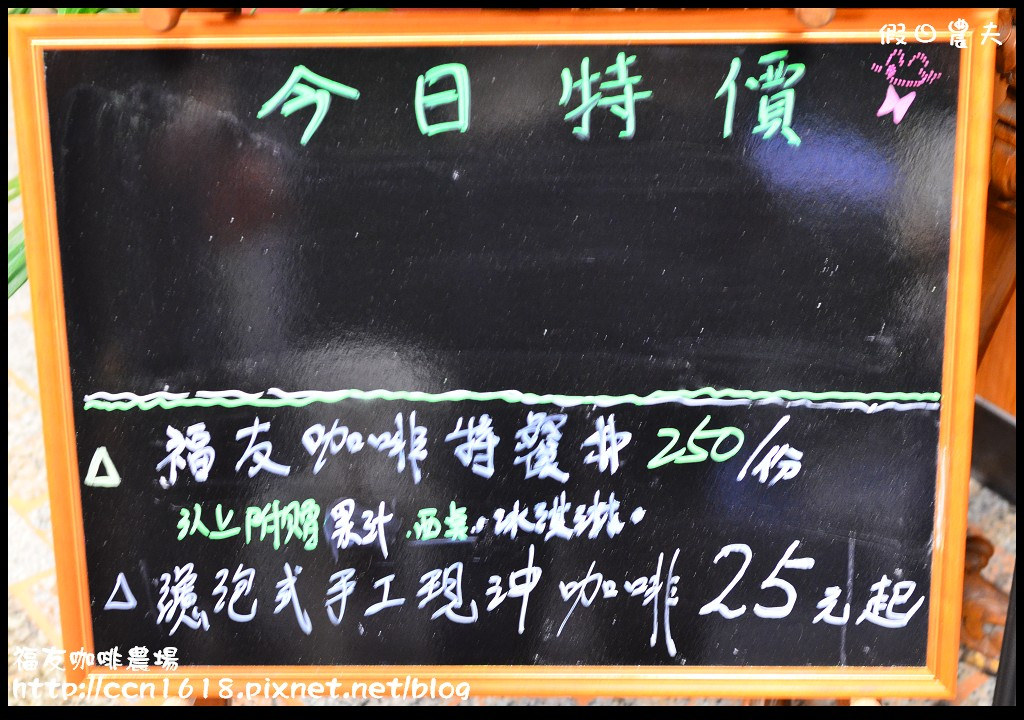 假日農夫
今日特價
△ 福友咖啡特餐 250/份
以上附贈果汁.西点.冰淇淋.
△ 濾泡式手工現沖咖啡 25元起
福友咖啡農場
http://ccn1618.pixnet.net/blog